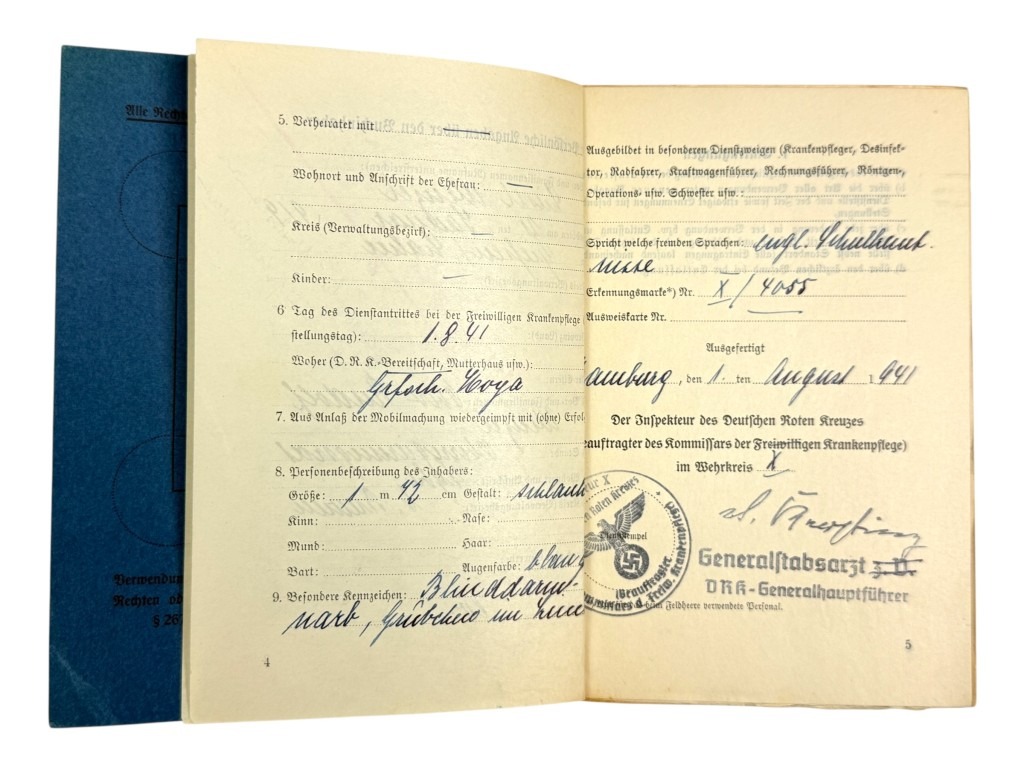 Alle Recht
Verwendun
Rechten ob
§ 267
5. Verheiratet mit
Wohnort und Anschrift der Ehefrau: —
Kreis (Verwaltungsbezirk): —
Kinder: —
6 Tag des Dienstantrittes bei der Freiwilligen Krankenpflege
stellungstag): 1.8.41
Woher (D.R.K.-Bereitschaft, Mutterhaus usw.):
Hoya
7. Aus Anlaß der Mobilmachung wiedergeimpft mit (ohne) Erfol
8. Personenbeschreibung des Inhabers:
Größe: 1 m 72 cm Gestalt: schlank
Kinn: Nase:
Mund: Haar:
Bart: Augenfarbe: blau
9. Besondere Kennzeichen: Blinddarm-
narb, Grübchen im
4
Ausgebildet in besonderen Dienstzweigen (Krankenpfleger, Desinfek-
tor, Radfahrer, Kraftwagenführer, Rechnungsführer, Röntgen-,
Operations- usw. Schwester usw.:
Spricht welche fremden Sprachen: engl. Schulkent
nisse
Erkennungsmarke*) Nr. X / 4055
Ausweiskarte Nr.
Ausgefertigt
amburg, den 1. ten August 1941
Der Inspekteur des Deutschen Roten Kreuzes
eauftragter des Kommissars der Freiwilligen Krankenpflege)
im Wehrkreis X
Roten Kreuzes
Dienststempel
(Beauftragter
Kommissars d. Freiw. Krankenpflege)
Generalstabsarzt z. V.
DRK-Generalhauptführer
beim Feldheere verwendete Personal.
5